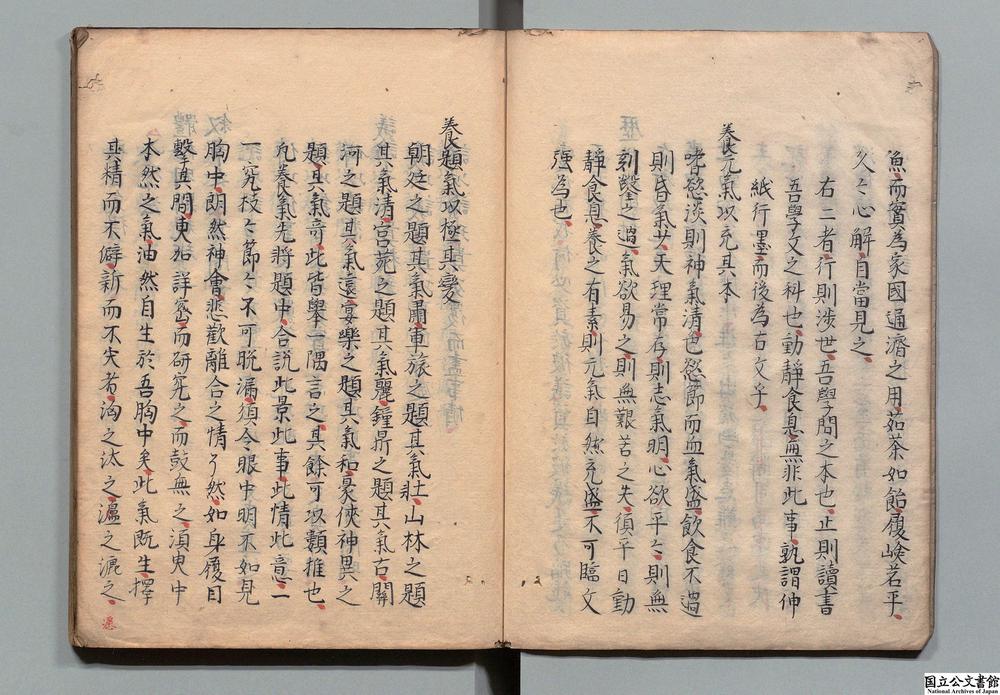 魚而實為家國通濟之用茹荼如飴履嶮若平
久〻心觧自當見之
右二者行則涉世吾學問之本也止則讀書
吾學文之科也動靜食息無非此事孰謂伸
紙行墨而後為古文乎
養元氣以充其本
嗜慾淡則神氣清也慾節而血氣盛飲食不過
則昏氣少天理常存則志氣明心欲平〻則無
刻鑿之過氣欲易之則無艱苦之失須平日動
靜食息養之有素則元氣自然充盛不可臨文
强為也
養題氣以極其變
朝廷之題其氣肅軍旅之題其氣壯山林之題
其氣清宮苑之題其氣麗鐘鼎之題其氣古關
河之題其氣遠宴樂之題其氣和豪俠神異之
題其氣奇此皆舉一隅言之其餘可以類推也
凡養氣先將題中合說此景此事此情此意一
一究枝〻節〻不可脫漏須令眼中明不如見
胸中朗然神會悲歡離合之情了然如身履目
擊其間東西詳密而研究之而鼓無之湏臾中
本然之氣油然自生於吾胸中矣此氣既生擇
其精而不僻新而不尖者淘之汰之溫之漉之
國立公文書館
National Archives of Japan